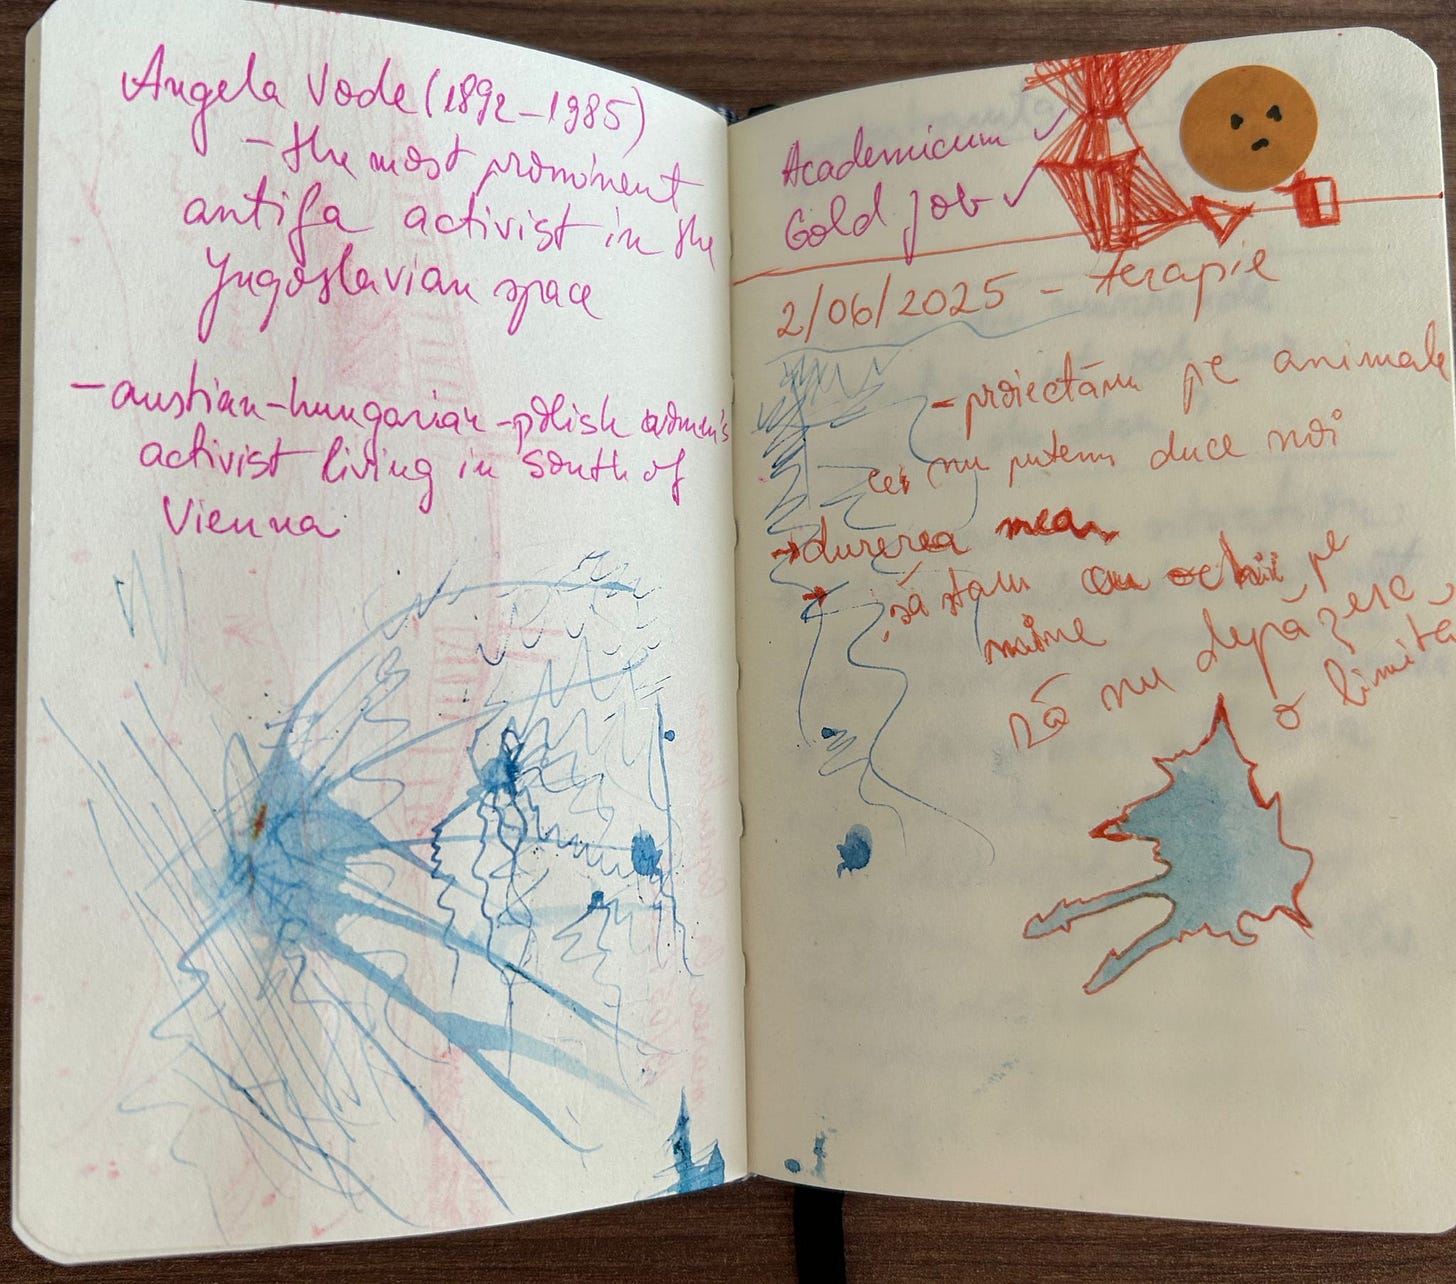 Angela Vode (1892-1985)
- the most prominent
antifa activist in the
Yugoslavian space
- austrian-hungarian-polish women's
activist living in south of
Vienna
Academicum ✓
Gold job ✓
2/06/2025 - terapie
- proiectăm pe animale
ce nu putem duce noi
→ durerea mea
→ să stau cu ochii pe
mine
să nu depășesc
o limită